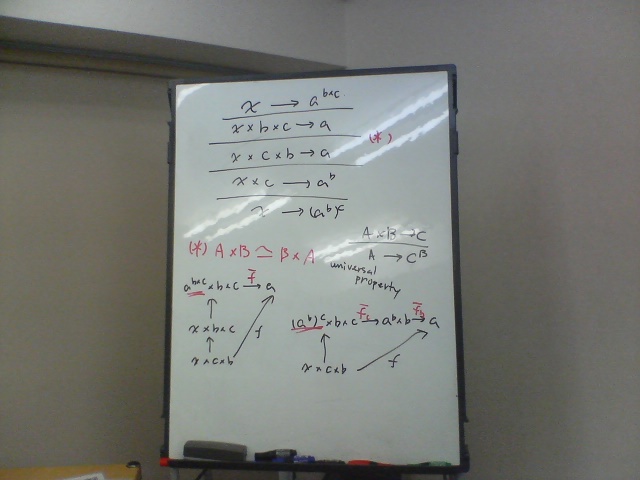 x → a^{b×c}
x×b×c → a
(*)
x×c×b → a
x×c → a^b
x → (a^b)^c
(*) A×B ≃ B×A
A×B → C
A → C^B
universal property
a^{b×c}×b×c → a
f̄
↑
x×b×c
f
↑
x×c×b
(a^b)^c×b×c → a^b×b → a
f̄_c
f̄_b
↑
x×c×b
f